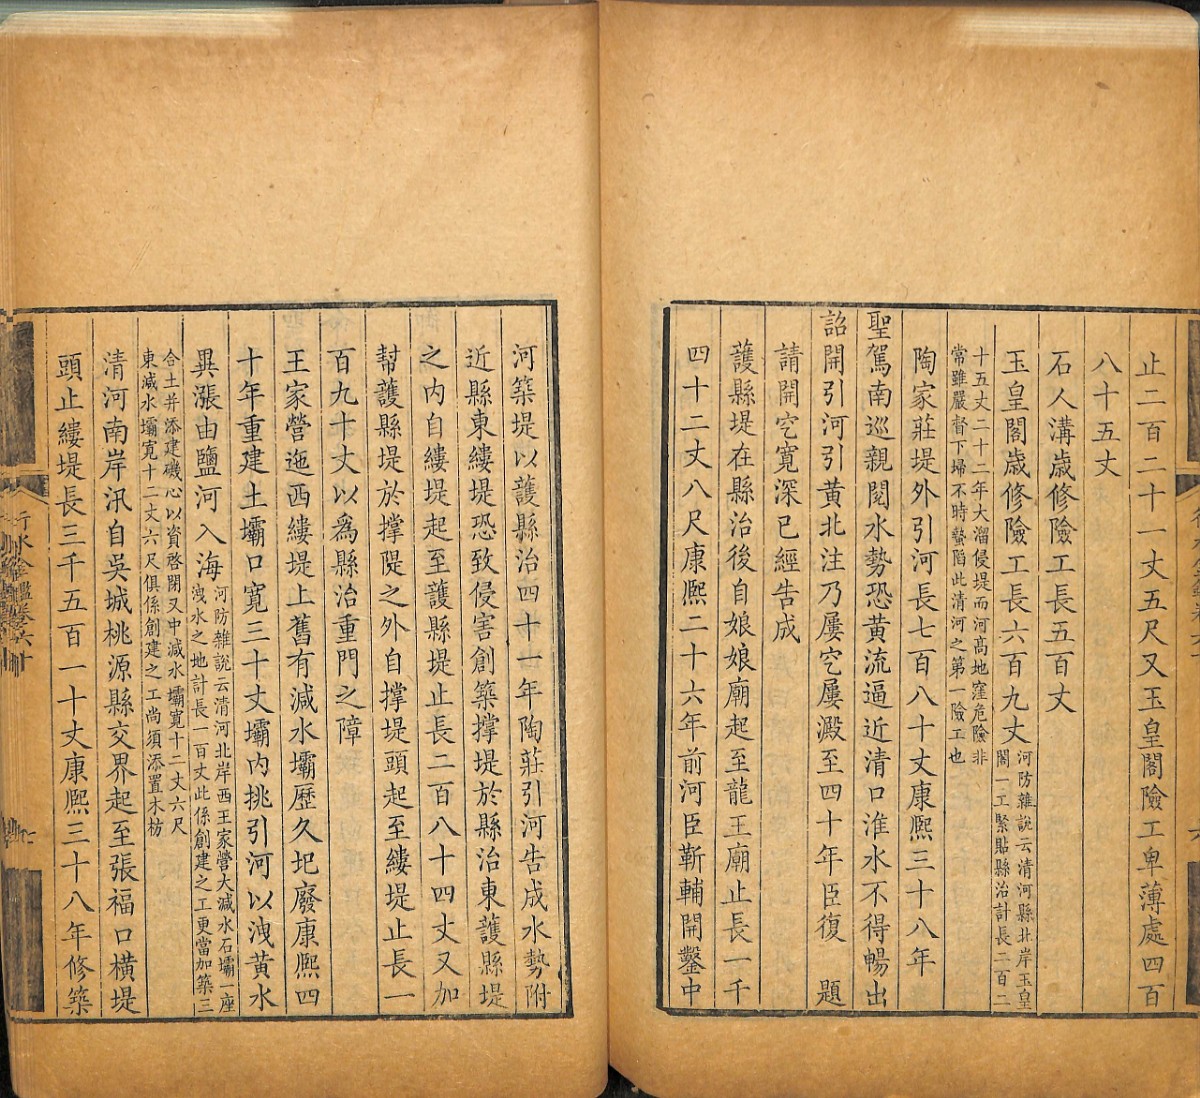 止二百二十一丈五尺又玉皇閣險工卑薄處四百
八十五丈
石人溝歲修險工長五百丈
玉皇閣歲修險工長六百九丈河防雜說云清河縣北岸玉皇
閣一工緊貼縣治計長二百二
十五丈二十二年大溜侵堤而河高地窪危險非
常雖嚴督下埽不時蟄陷此清河之第一險工也
陶家莊堤外引河長七百八十丈康熙三十八年
聖駕南巡親閱水勢恐黃流逼近清口淮水不得暢出
詔開引河引黃北注乃屢空屢澱至四十年臣復題
請開空寬深已經告成
護縣堤在縣治後自娘娘廟起至龍王廟止長一千
四十二丈八尺康熙二十六年前河臣靳輔開鑿中
河築堤以護縣治四十一年陶莊引河告成水勢附
近縣東縷堤恐致侵害創築撑堤於縣治東護縣堤
之內自縷堤起至護縣堤止長二百八十四丈又加
幫護縣堤於撑隄之外自撑堤頭起至縷堤止長一
百九十丈以為縣治重門之障
王家營迤西縷堤上舊有減水壩歷久圮廢康熙四
十年重建土壩口寬三十丈壩內挑引河以洩黃水
異漲由鹽河入海河防雜說云清河北岸西王家營大減水石壩一座
洩水之地計長一百丈此係創建之工更當加築三
合土并添建磯心以資啓閉又中減水壩寬十二丈六尺
東減水壩寬十二丈六尺俱係創建之工尚須添置木枋
清河南岸汛自吳城桃源縣交界起至張福口橫堤
頭止縷堤長三千五百一十丈康熙三十八年修築
行水金鑑卷六十